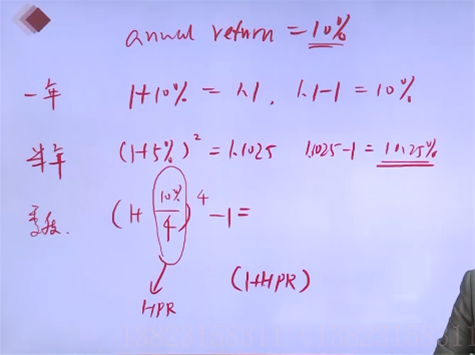 annual return = 10%
一年 1+10% = 1.1, 1.1-1 = 10%
半年 (1+5%)² = 1.1025 1.1025-1 = 10.25%
季度. (1+ 10%/4)⁴ -1=
HPR (1+HPR)